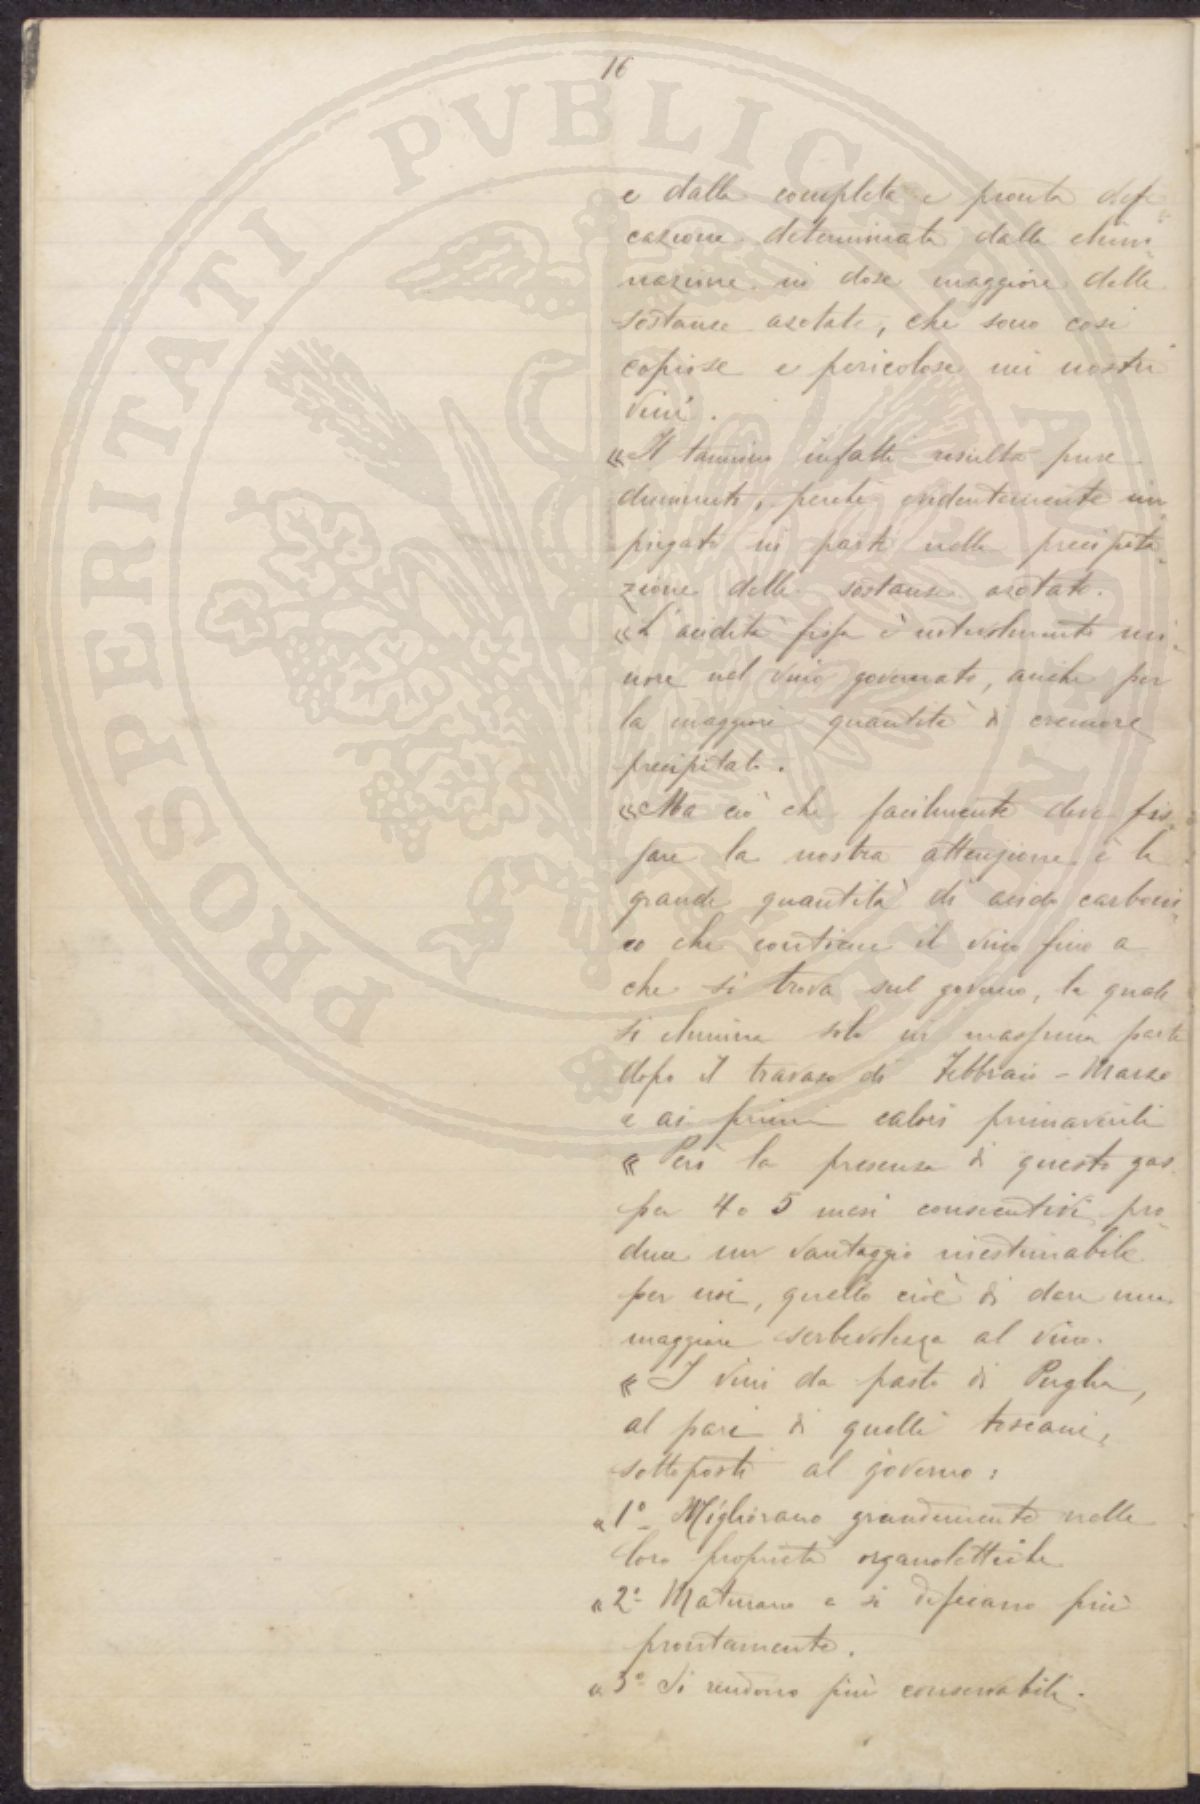 16
e dalla completa e pronta defe-
cazione determinata dalla elimi-
nazione in dose maggiore delle
sostanze azotate, che sono così
copiose e pericolose nei nostri
vini.
«Il tannino infatti risulta pure
diminuito, perchè evidentemente im-
piegato in parte nella precipita-
zione delle sostanze azotate.
«L'acidità fissa è naturalmente mi-
nore nel vino governato, anche per
la maggiore quantità di cremore
precipitato.
«Ma ciò che facilmente deve fis-
sare la nostra attenzione è la
grande quantità di acido carboni-
co che contiene il vino fino a
che si trova sul governo, la quale
si elimina solo in massima parte
dopo il travaso di Febbraio - Marzo
e ai primi calori primaverili
« Però la presenza di questo gas
per 4 o 5 mesi consecutivi pro-
duce un vantaggio inestimabile
per noi, quello cioè di dare una
maggiore serbevolezza al vino.
« I vini da pasto di Puglia,
al pari di quelli toscani,
sottoposti al governo:
« 1º Migliorano grandemente nelle
loro proprietà organolettiche
« 2º Maturano e si defecano più
prontamente.
« 3º Si rendono più conservabili.
PROSPERITATI PVBLICAE AVGENDAE